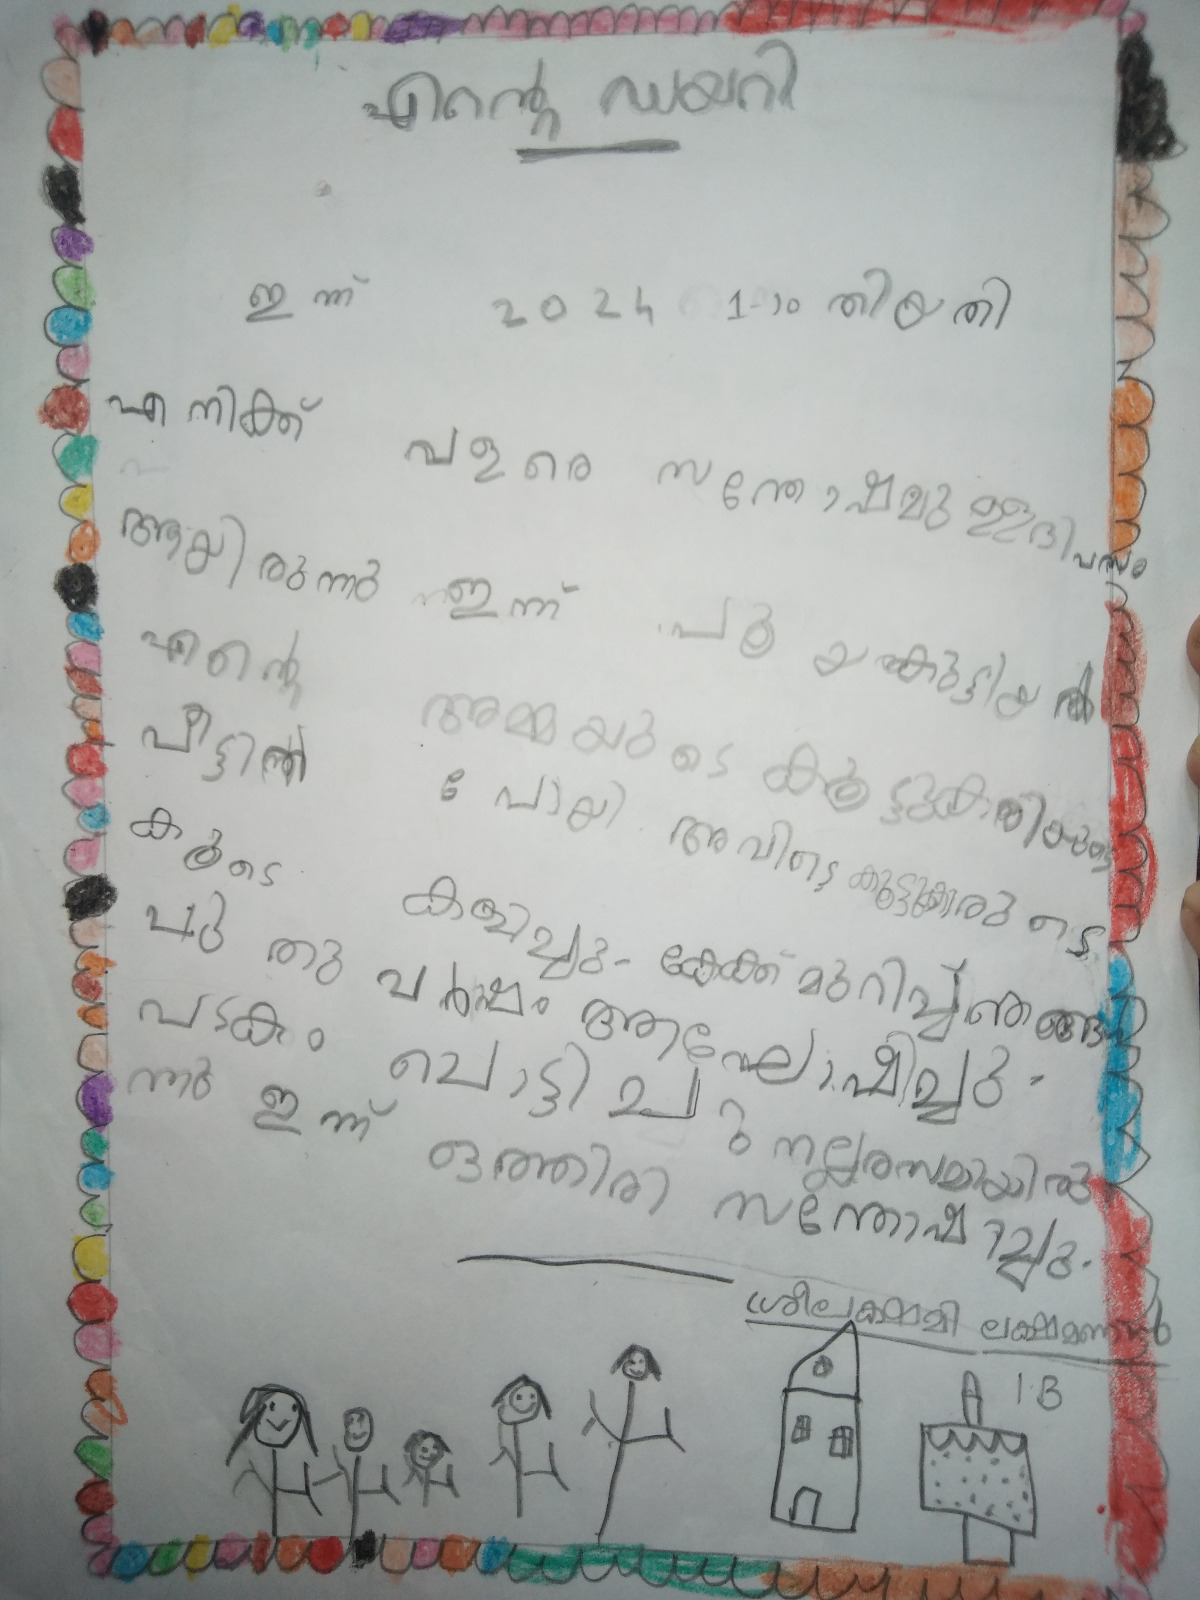 എന്റെ ഡയറി
ഇന്ന് 2024 1-ാം തിയതി
എനിക്ക് വളരെ സന്തോഷമു ള്ളദിവസം
ആയിരുന്നു ഇന്ന്
എന്റെ അമ്മയുടെ കൂട്ടുകാരിയുടെ
വീട്ടിൽ പോയി അവിടെ കൂട്ടുകാരുടെ
കൂടെ കളിച്ചു. കേക്ക് മുറിച്ച് ഞങ്ങൾ
പുതു വർഷം ആഘോഷിച്ചു.
പടകം പൊട്ടിച്ചു നല്ലരസമായിരു
ന്നു ഇന്ന് ഒത്തിരി സന്തോഷിച്ചു.
1 B